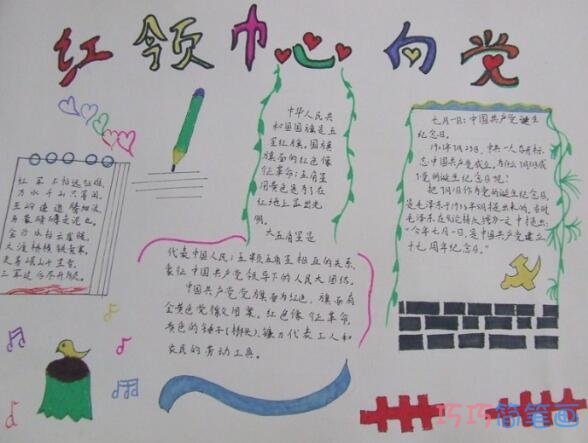 红领巾心向党
红军不怕远征难,
万水千山只等闲。
五岭逶迤腾细浪,
乌蒙磅礴走泥丸。
金沙水拍云崖暖,
大渡桥横铁索寒。
更喜岷山千里雪,
三军过后尽开颜。
中华人民共
和国国旗是五
星红旗。国旗
旗面的红色象
征革命;五角星
用黄色是为了在
红地上显出光
明。
大五角星是
代表中国人民;五颗五角星相互的关系,
象征中国共产党领导下的人民大团结。
中国共产党党旗面为红色,旗面有
金黄色党徽图案。红色象征革命,
黄色的锤子(
镰刀代表工人和
农民的劳动工具。
七月一日:中国共产党诞生
纪念日。
1921年7月23日,中共一大
中国共产党成立,为什么7月1日成
了党的诞生纪念日呢?
把7月1日作为党的诞生纪念日,
是毛泽东于1938年5月提出来的。当时
毛泽东在《论持久战》一文中提出:
“今年七月一日,是中国共产党建立
十七周年纪念日。”
巧巧简笔画